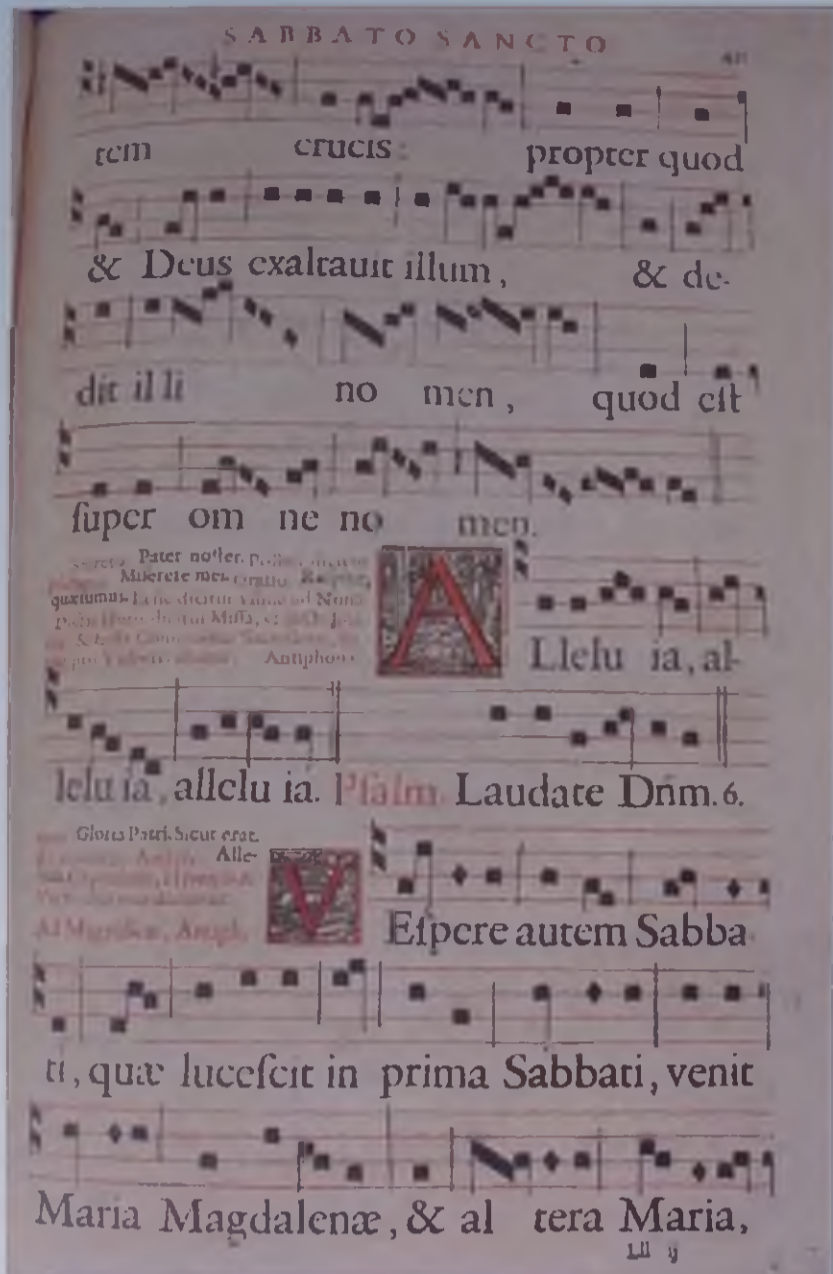 SABBATO SANCTO
tem crucis: propter quod
& Deus exaltauit illum, & de-
dit il li no men, quod eſt
ſuper om ne no men.
Pater noſter.
Miſerere mei. Reſpice,
quæſumus.
Antiphona
ALlelu ia, al-
lelu ia, allelu ia. Pſalm. Laudate Dñm. 6.
Gloria Patri. Sicut erat.
Alle-
Ad Magnificat, Antiph.
VEſpere autem Sabba-
ti, quæ luceſcit in prima Sabbati, venit
Maria Magdalenæ, & al tera Maria,
Lll ij